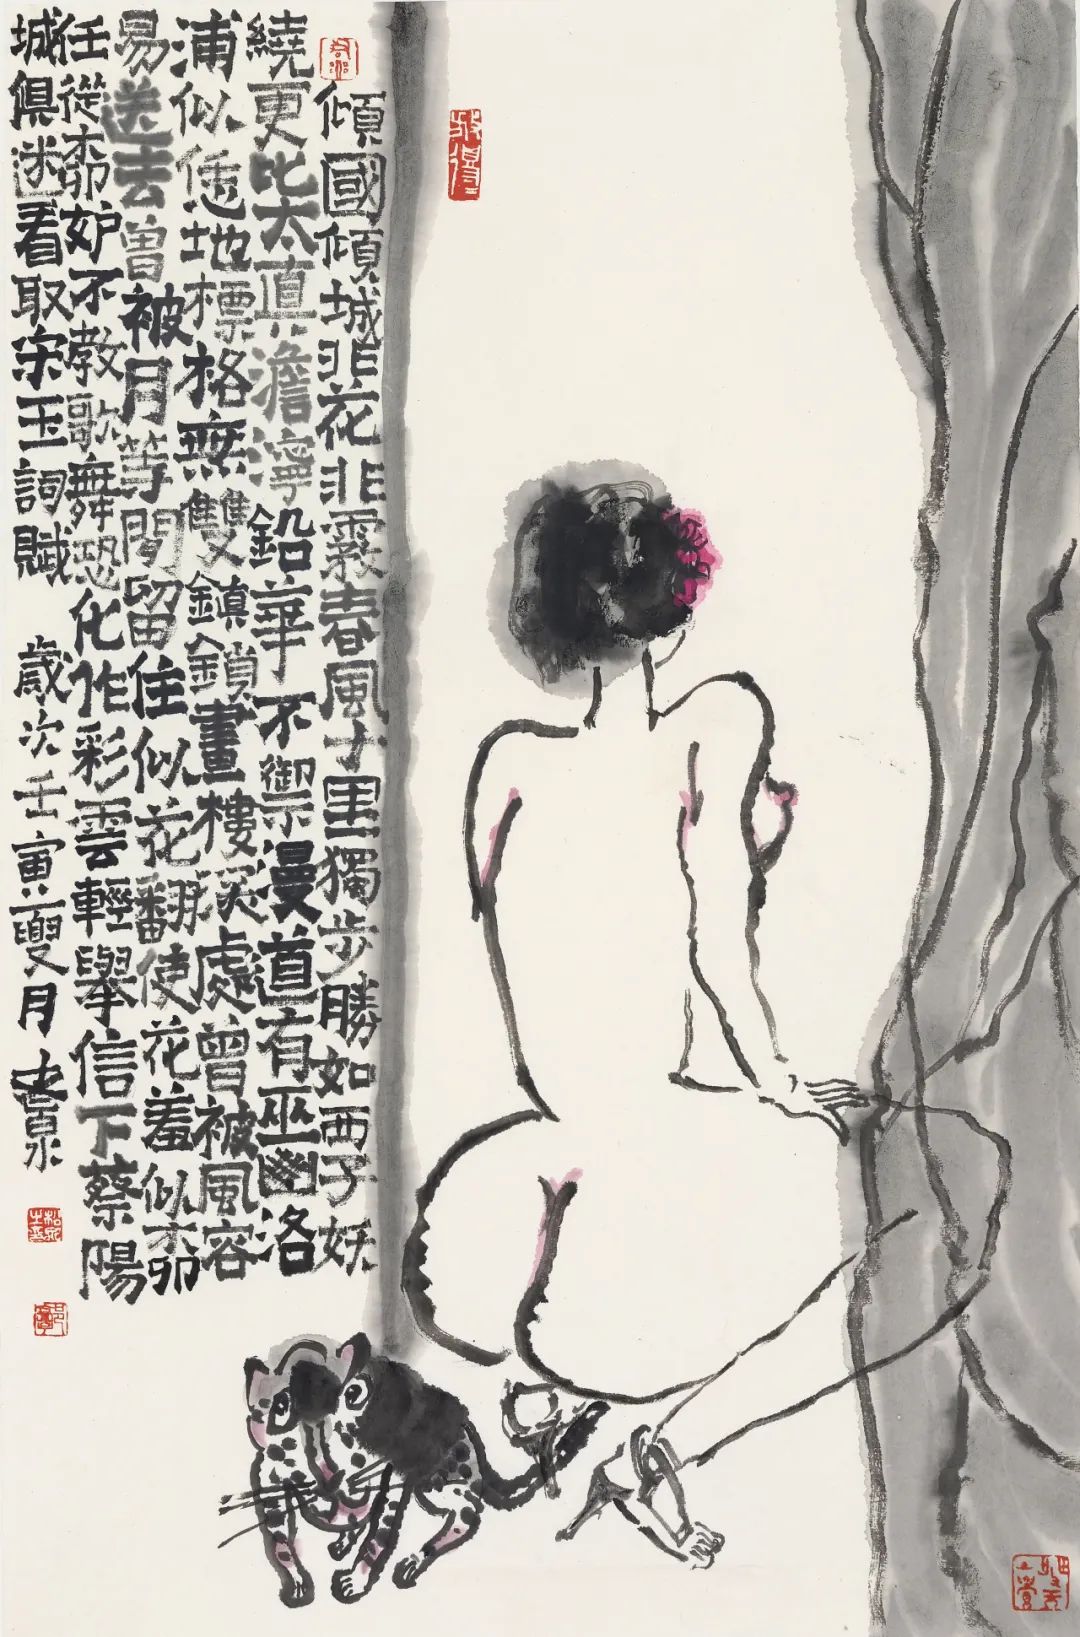 傾國傾城非花非霧春風十里獨步勝如西子妖
繞更比太真澹濘鉛華不御漫道有巫山洛
浦似恁地標格無雙鎮鎖畫樓深處曾被風容
易送去曾被月等閒留住似花翻使花羞似柳
任從柳妒不教歌舞恐化作彩雲輕舉信下蔡陽
城俱迷看取宋玉詞賦 歲次壬寅夏月